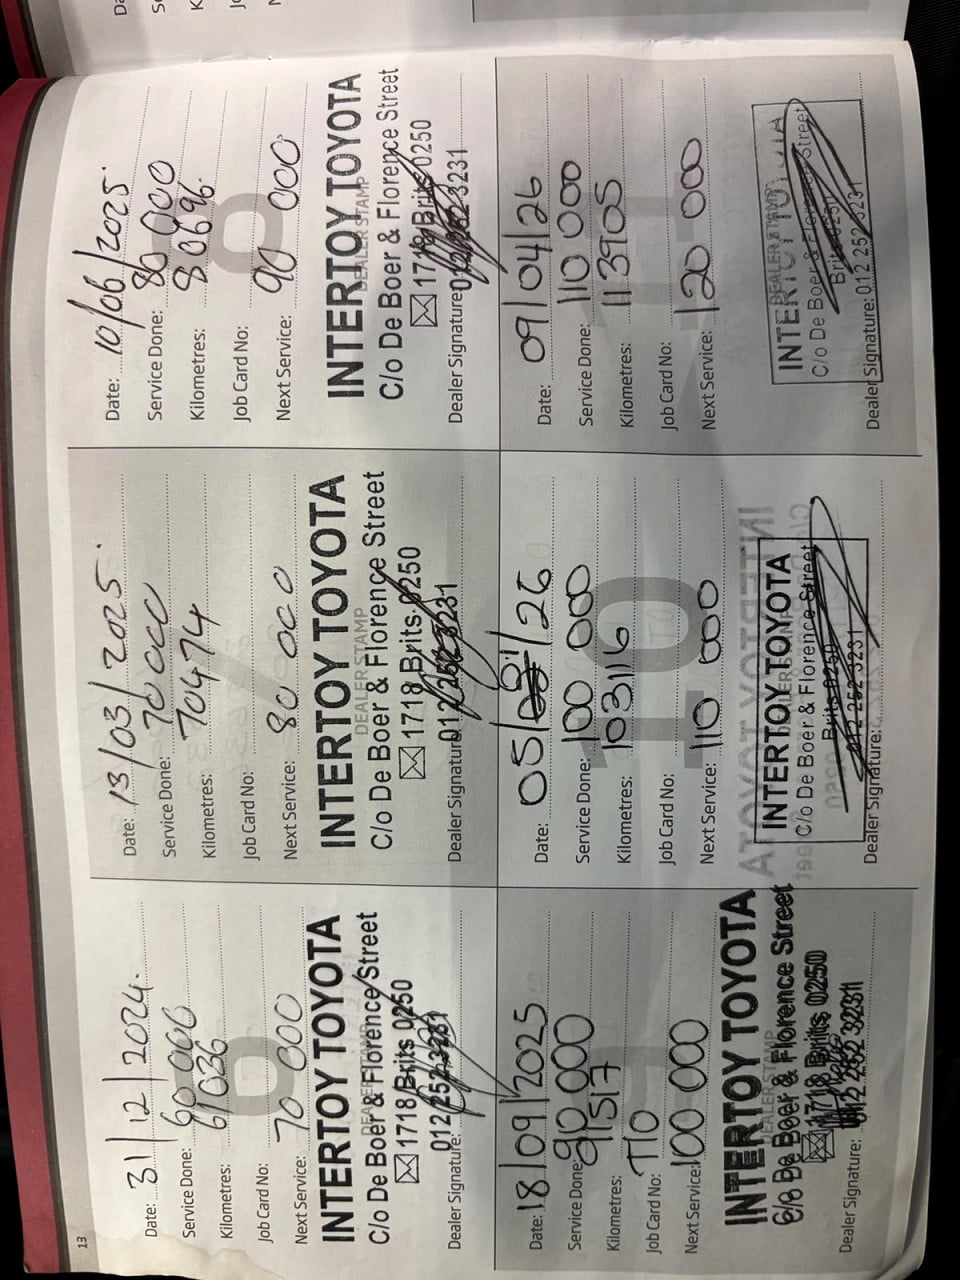 13
Date: 31/12/2024.
Service Done: 60 000
Kilometres: 61036
Job Card No:
Next Service: 70 000
INTERTOY TOYOTA
DEALER STAMP
C/o De Boer & Florence Street
1718 Brits 0250
012 252 3231
Dealer Signature:
Date: 13/03/2025.
Service Done: 70 000
Kilometres: 70474
Job Card No:
Next Service: 80 000
INTERTOY TOYOTA
DEALER STAMP
C/o De Boer & Florence Street
1718 Brits 0250
012 252 3231
Dealer Signature:
Date: 10/06/2025.
Service Done: 80 000
Kilometres: 80696.
8
Job Card No:
Next Service: 90 000.
INTERTOY TOYOTA
DEALER STAMP
C/o De Boer & Florence Street
1718 Brits 0250
012 252 3231
Dealer Signature:
Date: 18/09/2025
Service Done: 90 000
Kilometres: 91517
Job Card No: T10
Next Service: 100 000
INTERTOY TOYOTA
DEALER STAMP
C/o De Boer & Florence Street
1718 Brits 0250
012 252 3231
Dealer Signature:
Date: 05/01/26
Service Done: 100 000
Kilometres: 103116
10
Job Card No:
Next Service: 110 000
INTERTOY TOYOTA
DEALER STAMP
C/o De Boer & Florence Street
Brits 0250
012 252 3231
Dealer Signature:
Date: 09/04/26
Service Done: 110 000
Kilometres: 113905
11
Job Card No:
Next Service: 120 000
DEALER STAMP
INTERTOY TOYOTA
C/o De Boer & Florence Street
Brits 0250
012 252 3231
Dealer Signature: